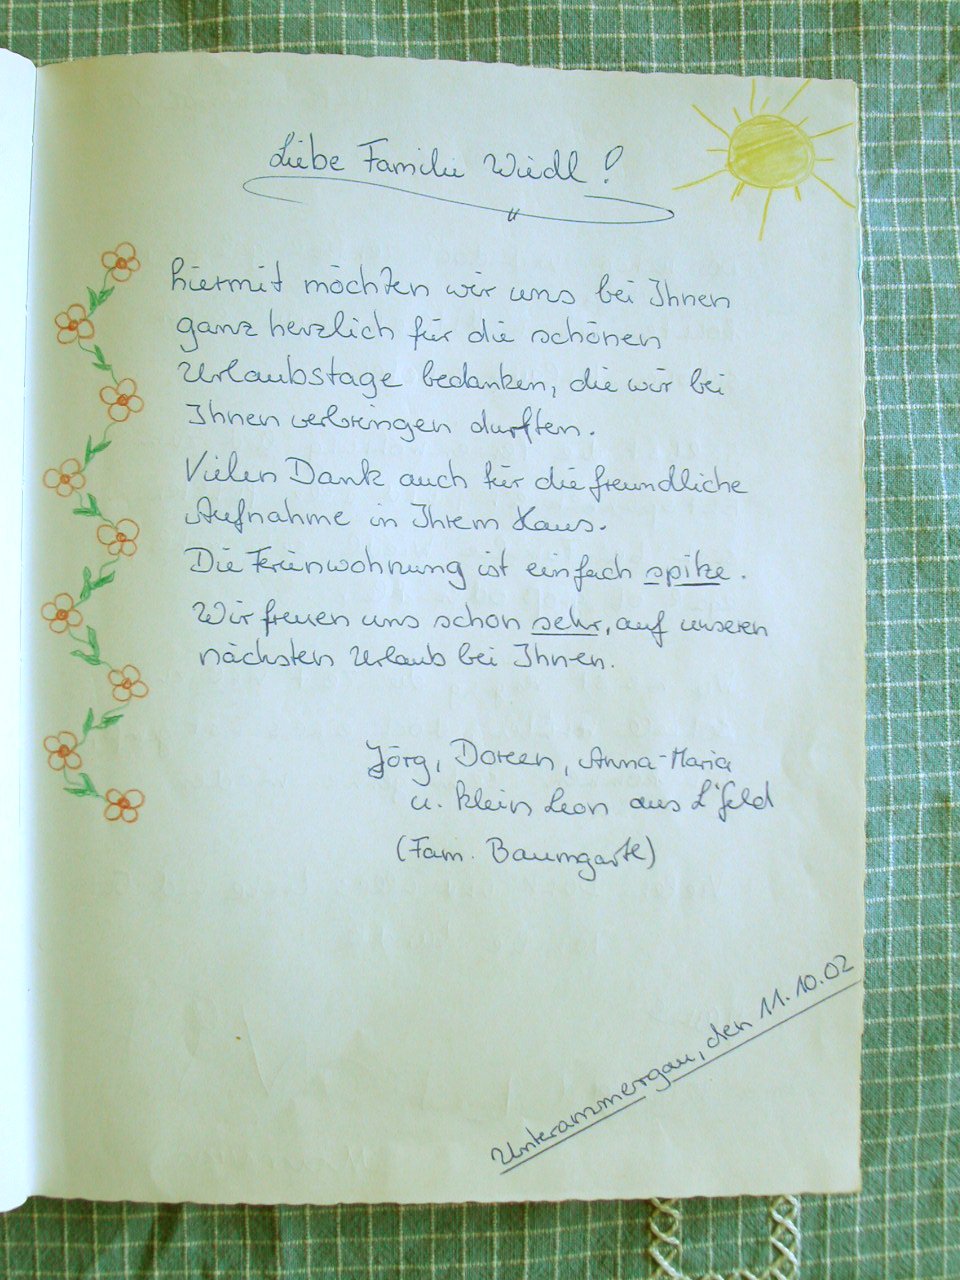 Liebe Familie Wiedl!
hiermit möchten wir uns bei Ihnen
ganz herzlich für die schönen
Urlaubstage bedanken, die wir bei
Ihnen verbringen durften.
Vielen Dank auch für die freundliche
Aufnahme in Ihrem Haus.
Die Ferienwohnung ist einfach spitze.
Wir freuen uns schon sehr, auf unseren
nächsten Urlaub bei Ihnen.
Jörg, Doreen, Anna-Maria
u. klein Leon aus L'feld
(Fam. Baumgarte)
Unterammergau, den 11.10.02